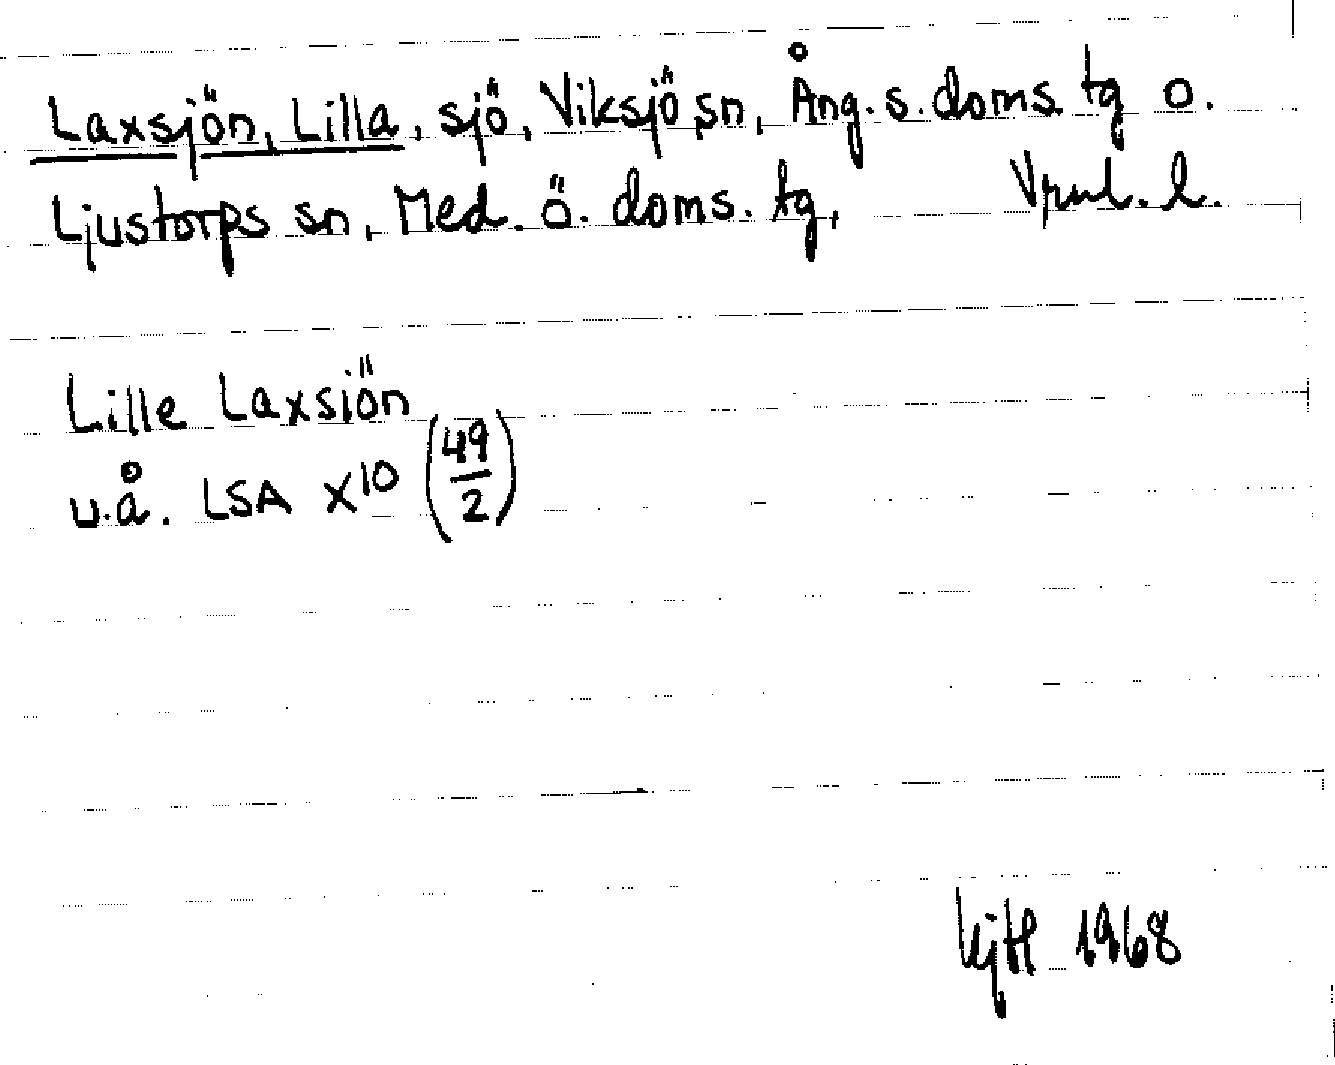 Laxsjön, Lilla, sjö, Viksjö sn, Ång. s. doms. tg o.
Ljustorps sn, Med. ö. doms. tg, Vrml. l.
Lille Laxsiön
u.å. LSA X¹⁰ (49/2)
1968